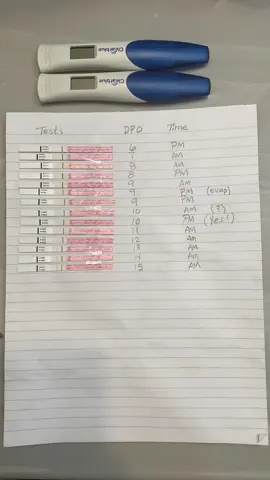 Clearblue
Clearblue
Tests DPO Time
6 PM
7 AM
8 AM
8 PM
9 AM
9 PM (evap)
9 PM
10 AM (?)
10 PM (Yes!)
11 AM
12 AM
13 AM
14 AM
15 AM